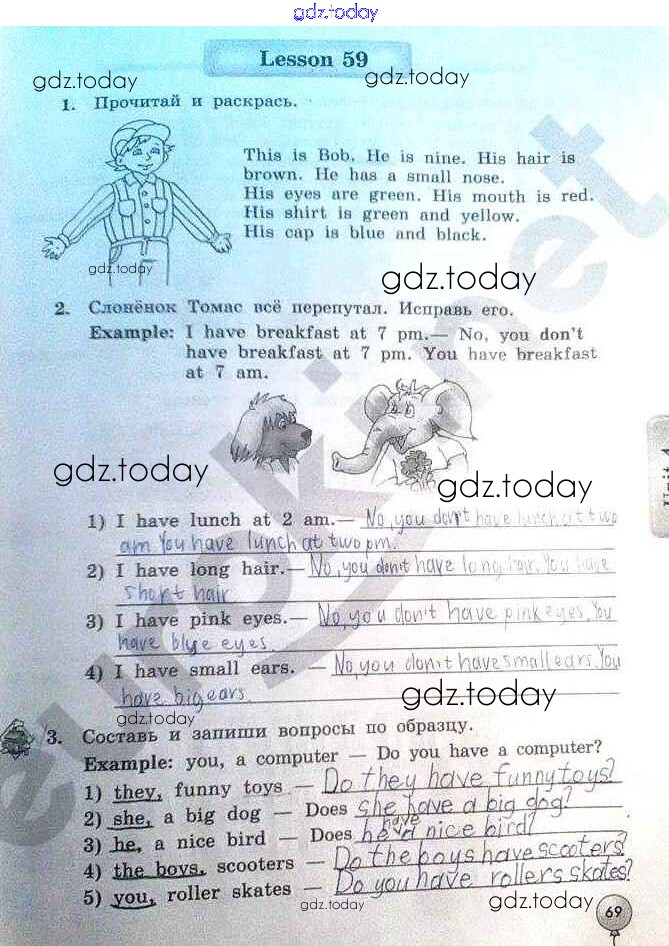 gdz.today
Lesson 59
gdz.today gdz.today
1. Прочитай и раскрась.
This is Bob. He is nine. His hair is
brown. He has a small nose.
His eyes are green. His mouth is red.
His shirt is green and yellow.
His cap is blue and black.
gdz.today
gdz.today
2. Слонёнок Томас всё перепутал. Исправь его.
Example: I have breakfast at 7 pm.— No, you don't
have breakfast at 7 pm. You have breakfast
at 7 am.
gdz.today
gdz.today
1) I have lunch at 2 am.— No, you don't have lunch at two
am. You have lunch at two pm.
2) I have long hair.— No, you don't have long hair. You have
short hair
3) I have pink eyes.— No, you don't have pink eyes. You
have blye eyes.
4) I have small ears. — No, you don't have small ears. You
have big ears.
gdz.today
gdz.today
3. Составь и запиши вопросы по образцу.
Example: you, a computer — Do you have a computer?
1) they, funny toys — Do they have funny toys?
2) she, a big dog — Does she have a big dog?
3) he, a nice bird — Does he have a nice bird?
4) the boys, scooters — Do the boys have scooters?
5) you, roller skates — Do you have rollers skates?
gdz.today
gdz.today
69
eurokinet